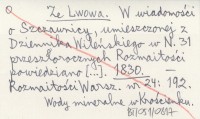 Ze Lwowa. W wiadomości
o Szczawnicy, umieszczonej z
Dziennika Wileńskiego w N. 31
przeszłorocznych Rozmaitości
powiedziano [...]. 1830.
Rozmaitości Warsz. nr 24: 192.
Wody mineralne w Krościenku.
BJ/051/0617